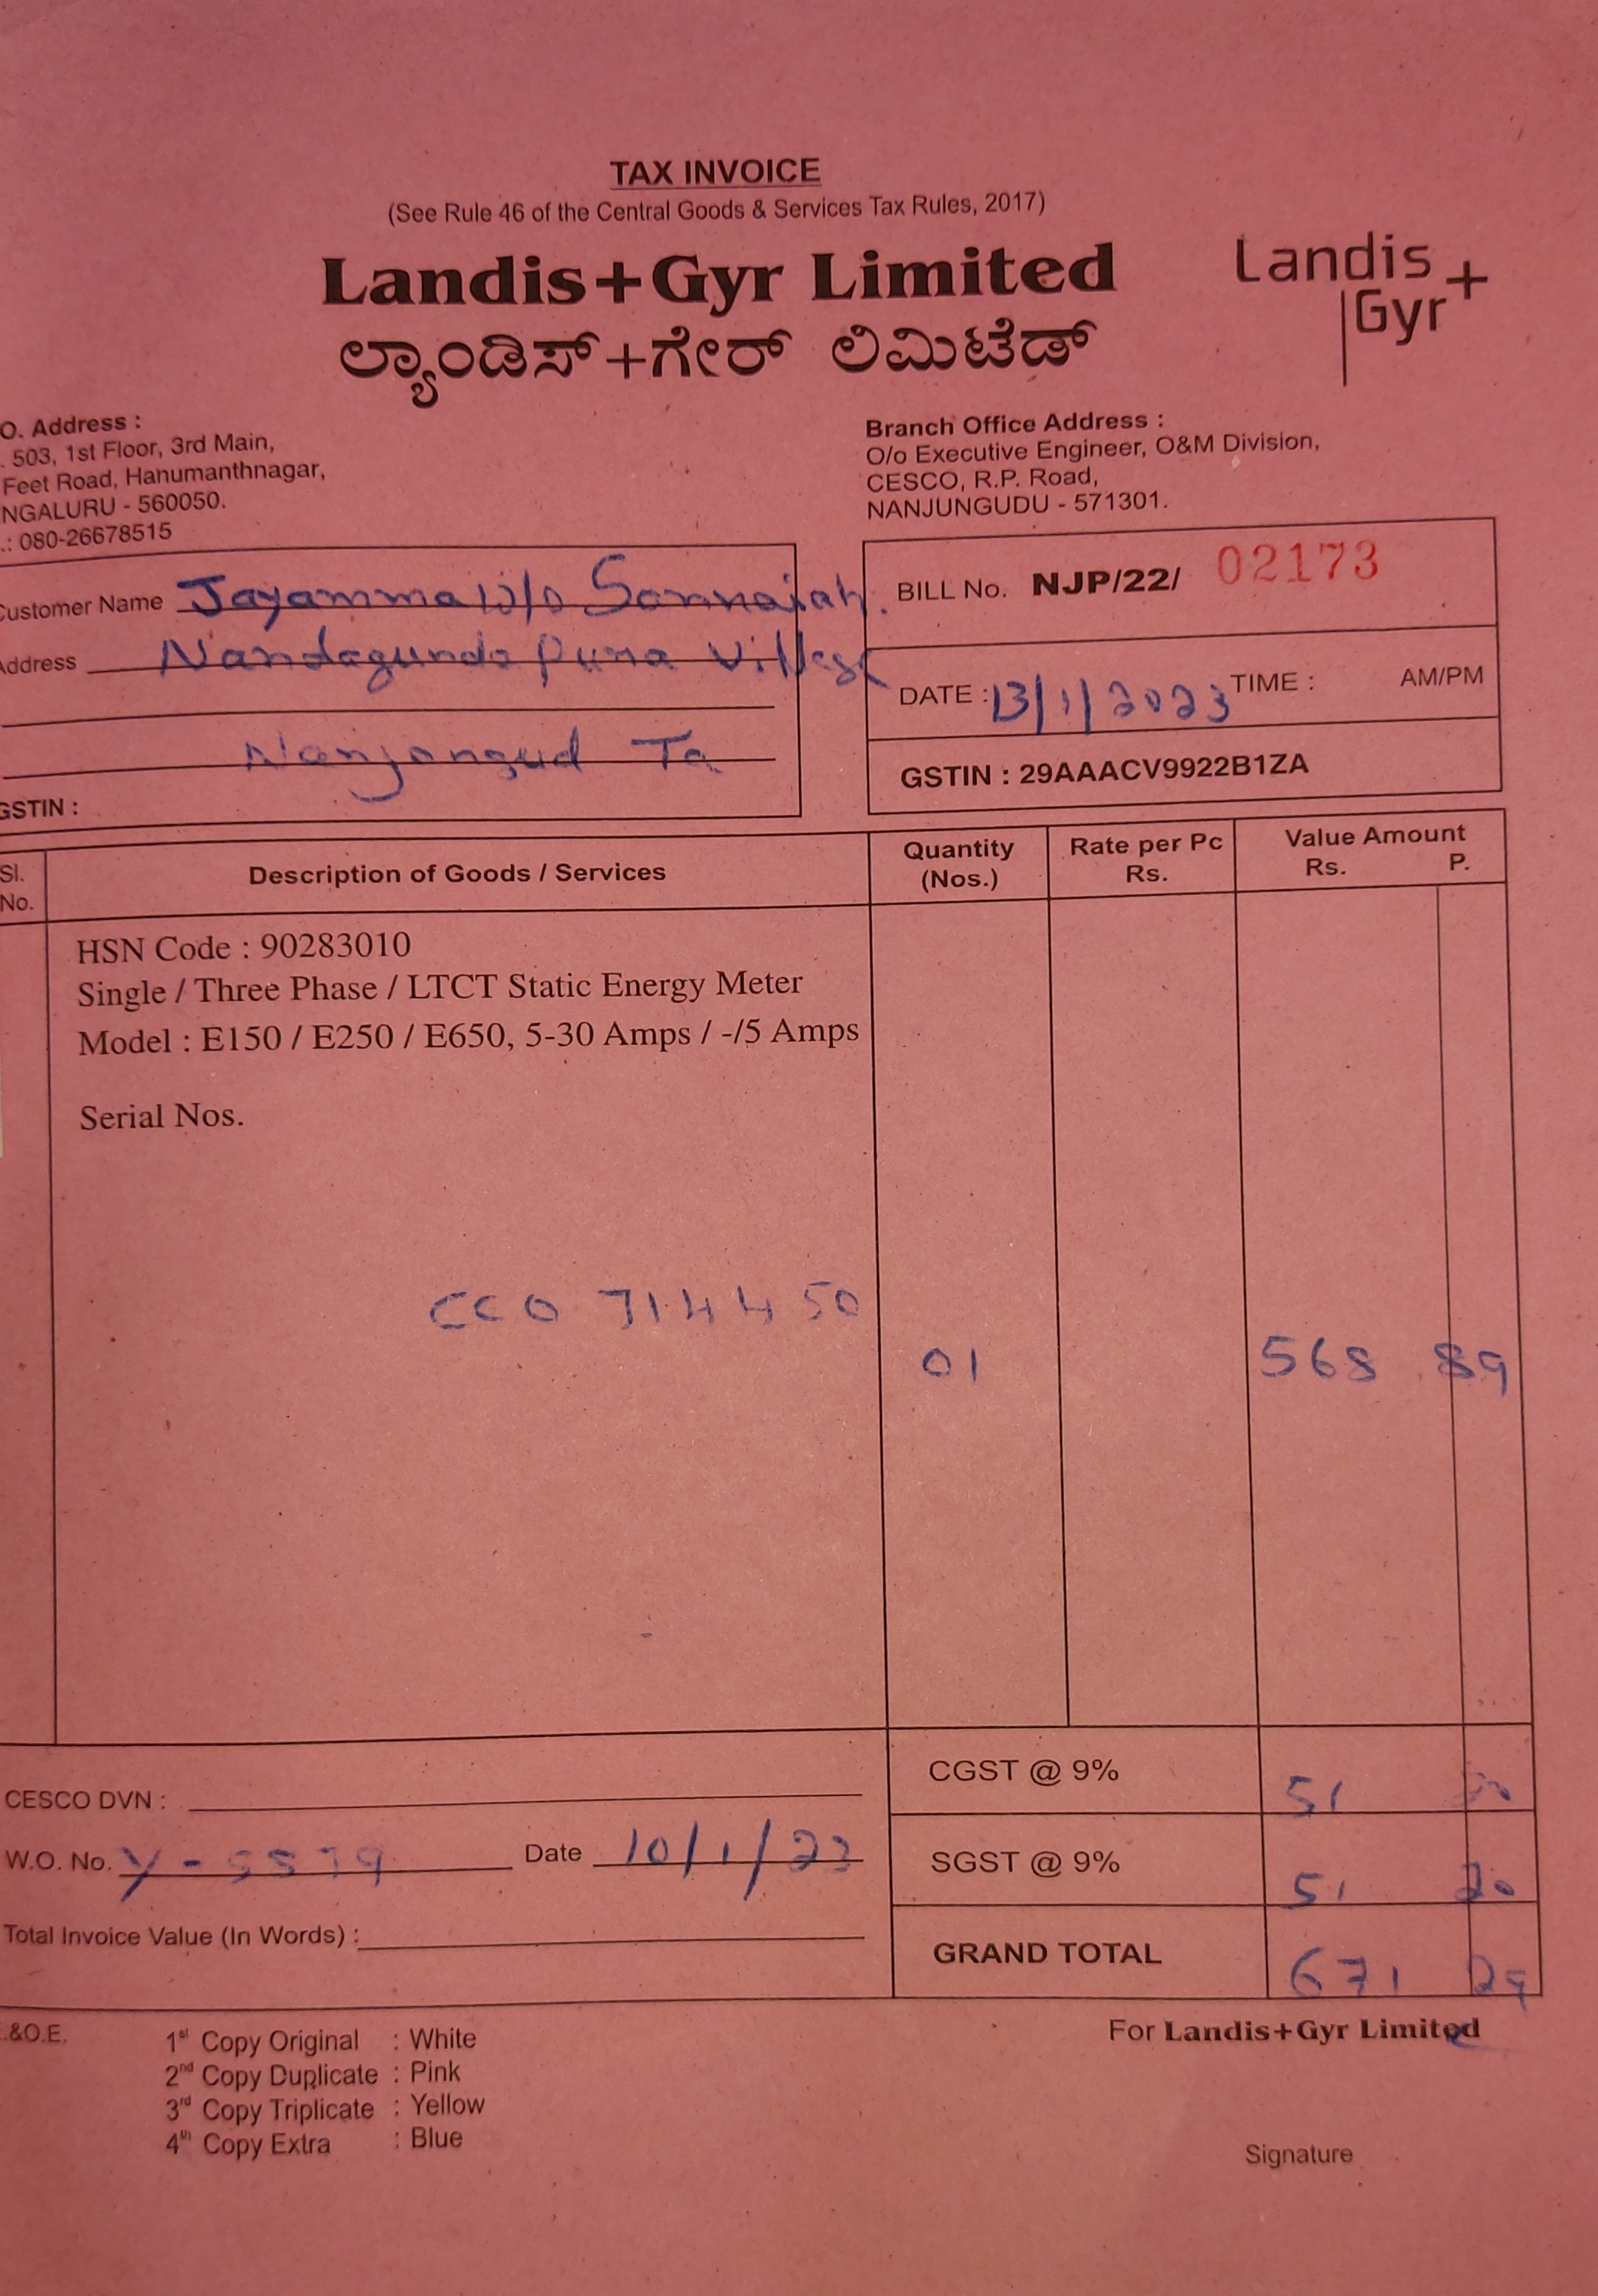 TAX INVOICE
(See Rule 46 of the Central Goods & Services Tax Rules, 2017)
Landis+Gyr Limited
Landis+
Gyr
ಲ್ಯಾಂಡಿಸ್+ಗೇರ್ ಲಿಮಿಟೆಡ್
O. Address :
. 503, 1st Floor, 3rd Main,
Feet Road, Hanumanthnagar,
NGALURU - 560050.
.: 080-26678515
Branch Office Address :
O/o Executive Engineer, O&M Division,
CESCO, R.P. Road,
NANJUNGUDU - 571301.
Customer Name Jayamma W/o Sonnaiah.
Address Nandagunda Pura Village
Nanjangud Ta
GSTIN :
BILL No. NJP/22/ 02173
DATE : 13/1/2023 TIME : AM/PM
GSTIN : 29AAACV9922B1ZA
Sl. No. Description of Goods / Services Quantity (Nos.) Rate per Pc Rs. Value Amount Rs. P.
HSN Code : 90283010
Single / Three Phase / LTCT Static Energy Meter
Model : E150 / E250 / E650, 5-30 Amps / -/5 Amps
Serial Nos.
CCO 714450
01 568 89
CGST @ 9% 51
CESCO DVN :
W.O. No. Date 10/1/23
SGST @ 9% 51 20
Total Invoice Value (In Words) :
GRAND TOTAL 671 29
.&O.E.
1st Copy Original : White
2nd Copy Duplicate : Pink
3rd Copy Triplicate : Yellow
4th Copy Extra : Blue
For Landis+Gyr Limited
Signature